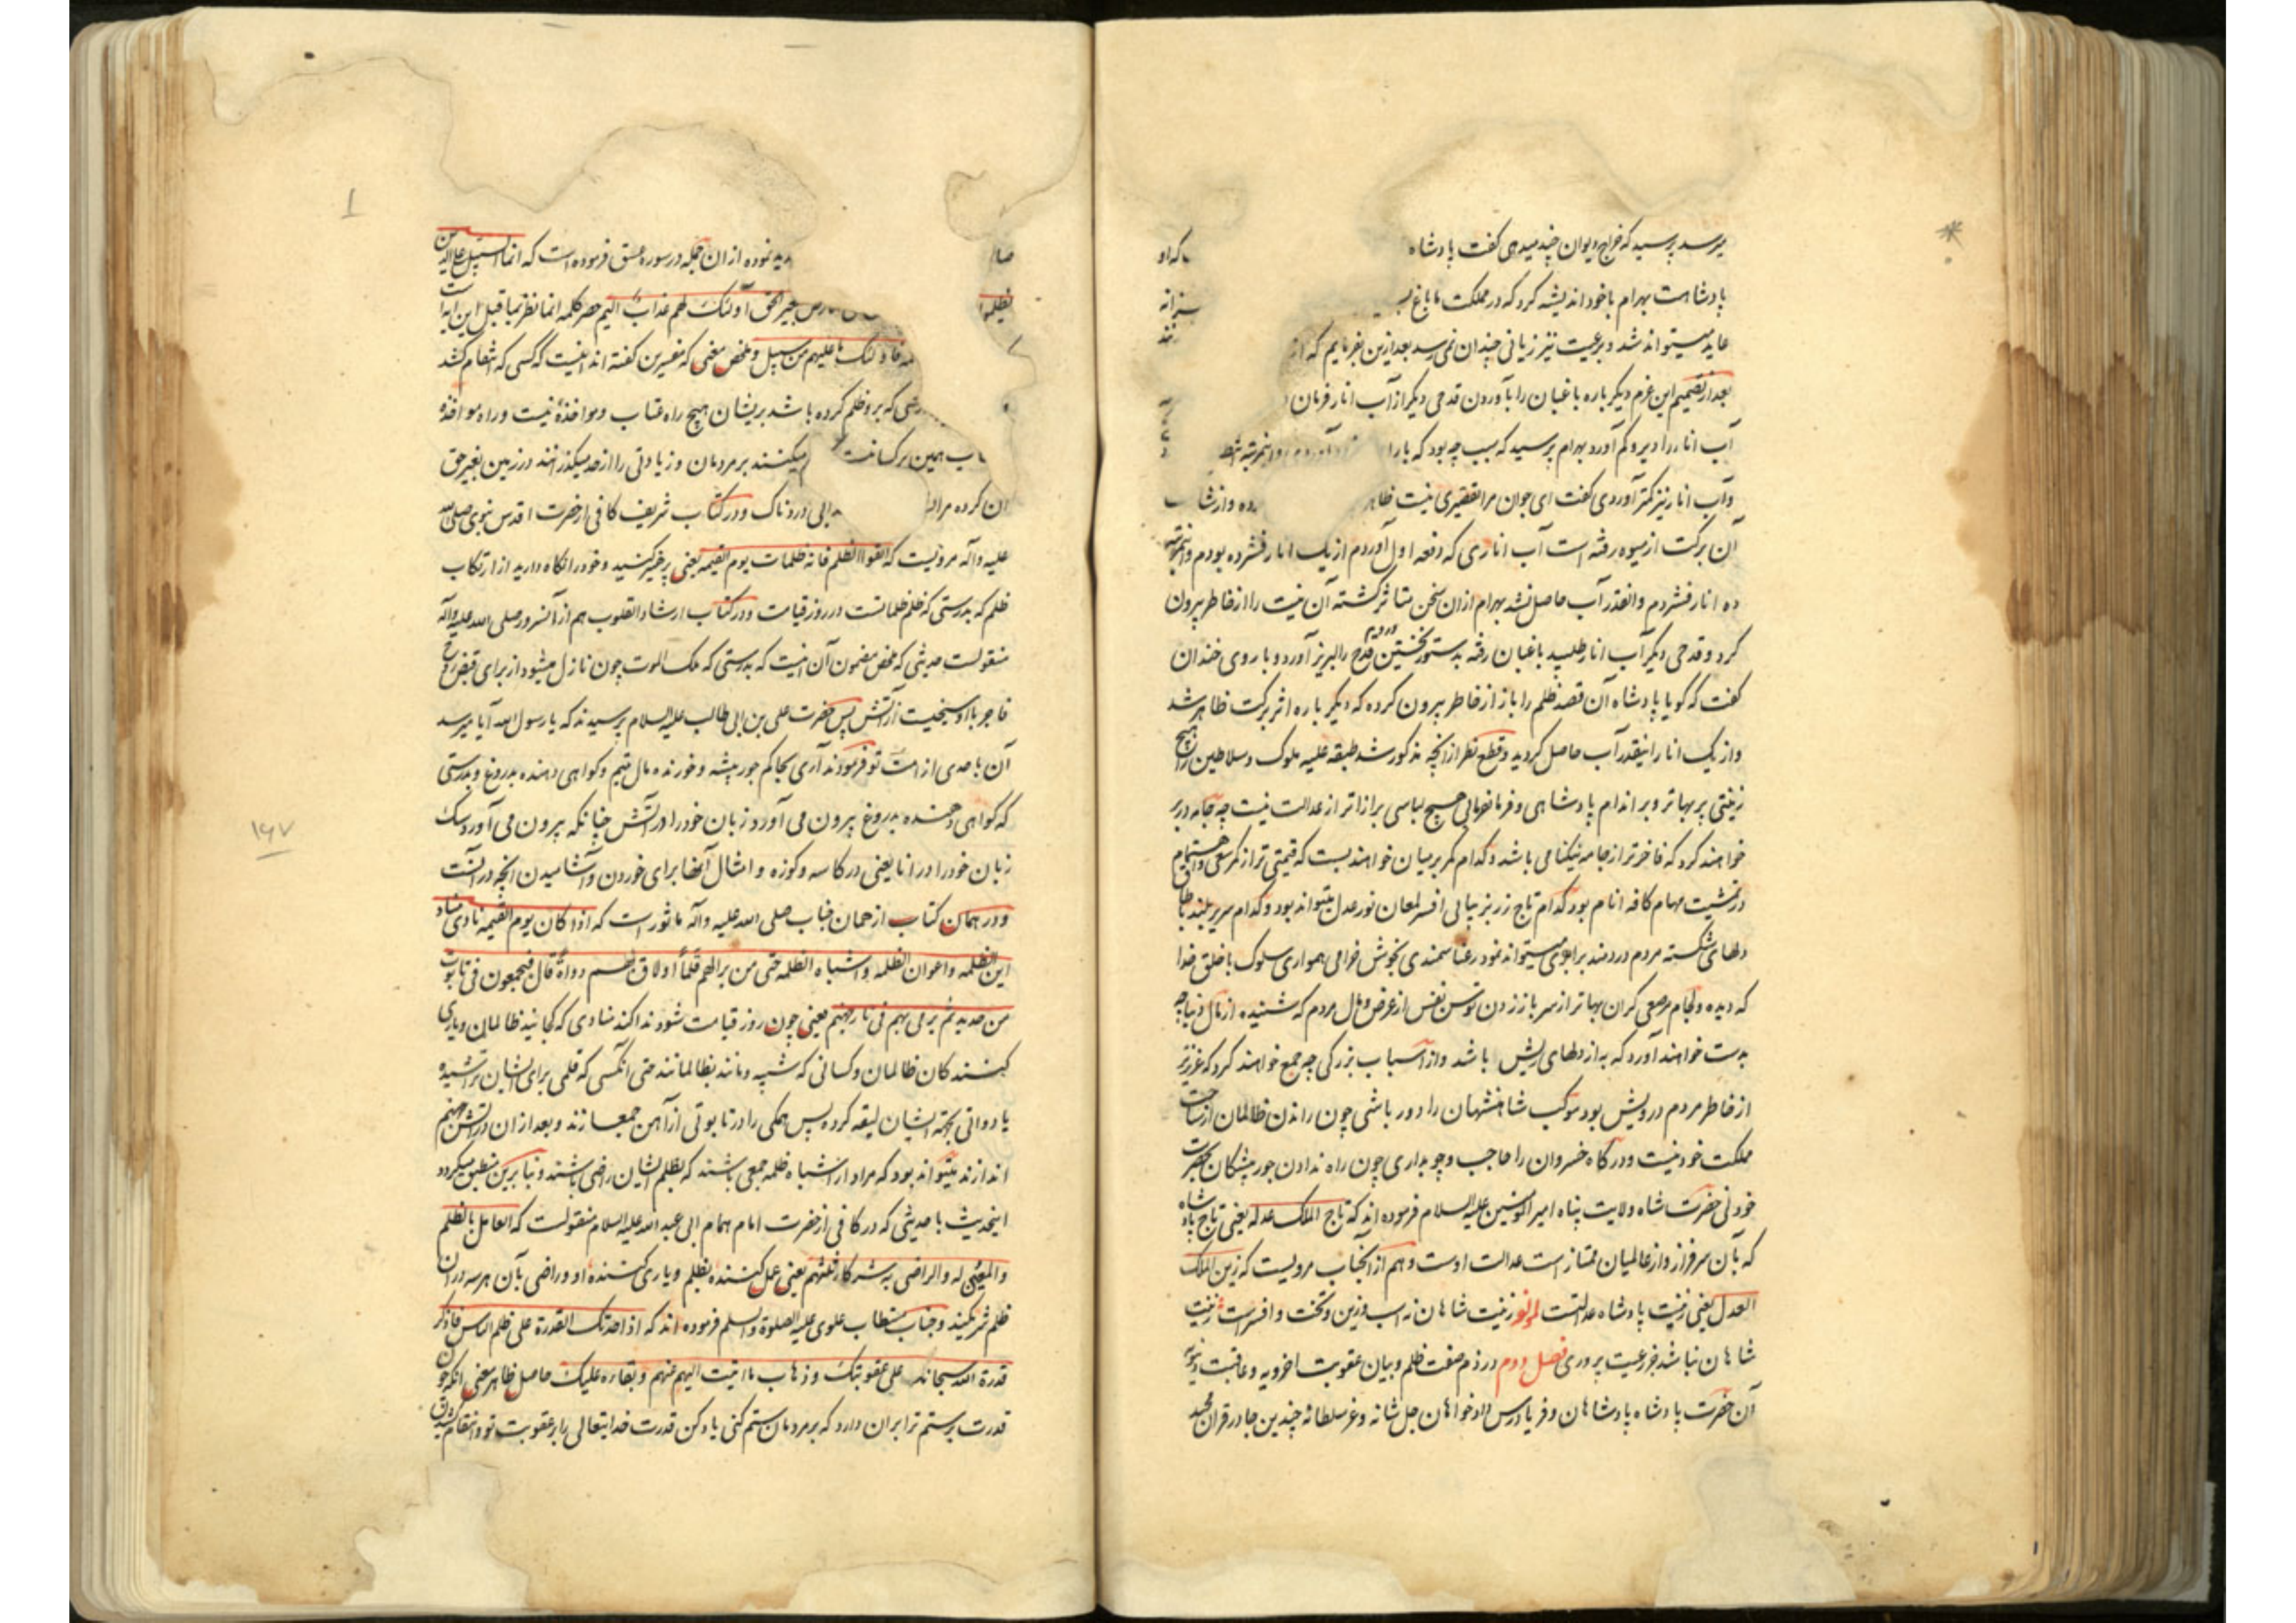 میرسد پرسید که خراج دیوان چند میدهی گفت پادشاه که او
پادشاهست بهرام باخود اندیشه کرد که در مملکت ما باغ
عاید میتواند شد و برعیت نیز زیانی چندان نمی رسد بعد ازین بفرمایم که از
بعد از تصمیم این عزم دیگر باره باغبان را بآوردن قدحی دیگر از آب انار فرمان
آب انار را دیر و کم آورد بهرام پرسید که سبب چه بود که بار
و آب انار نیز کمتر آوردی گفت ای جوان مرا تقصیری نیست ظاهر
آن برکت از میوه رفته است آب اناری که دفعه اول آوردم از یک انار فشرده بودم و اینمرتبه
ده انار فشردم و آنقدر آب حاصل نشد بهرام ازان سخن متاثر کشته آن نیت را از خاطر بیرون
کرد و قدحی دیگر آب انار طلبید باغبان رفته بدستور نخستین قدح را لبریز آورد و با روی خندان
گفت که گویا پادشاه آن قصد ظلم را باز از خاطر بیرون کرده که دیگر باره اثر برکت ظاهر شد
و از یک انار اینقدر آب حاصل کردید و قطع نظر از آنچه مذکور شد طبقه علیه ملوک و سلاطین را هیچ
زینتی پر بهاتر و بر اندام پادشاهی و فرمانفرمایی هیچ لباسی برازاتر از عدالت نیست چه جامه در بر
خواهند کرد که فاخرتر از جامه نیکنامی باشد و کدام کمر بر میان خواهند بست که قیمتی تر از کمر سعی و اهتمام
در تمشیت مهام کافه انام بود کدام تاج زر بزیبایی افسر لمعان نور عدل میتواند بود و کدام سریر بلند با
دلهای شکسته مردم دردمند برابری میتواند نمود رعنا سمندی بخوش خرامی همواری سلوک با خلق خدا
که دیده و لجام مرصعی گران بهاتر از سر باز زدن توسن نفس از عرض و مال مردم که شنیده از مال دنیا چه
بدست خواهند آورد که به از دلهای ریش باشد و از اسباب بزرگی چه جمع خواهند کرد که عزیزتر
از خاطر مردم درویش بود موکب شاهنشهان را دور باشی چون راندن ظالمان از ساحت
مملکت خود نیست و درگاه خسروان را حاجب و چوبداری چون راه ندادن جور پیشگان بحضرت
خود نی حضرت شاه ولایت پناه امیر المومنین علیه السلام فرموده اند که تاج الملک عدله یعنی تاج پادشاه
که بآن سرفراز و از عالمیان ممتاز است عدالت اوست و هم از آنجناب مرویست که زین الملک
العدل یعنی زینت پادشاه عدالتست زینت شاهان نه اسب و زین و تخت و افسر است زینت
شاهان نباشد جز رعیت پروری فصل دوم در ذم صفت ظلم و بیان عقوبت اخرویه و عاقبت دنیویه
آن حضرت پادشاه پادشاهان و فریادرس دادخواهان جل شانه و عز سلطانه چندین جا در قران مجید
نموده از ان جمله در سوره عسق فرموده است که انما السبیل علی الذین
یظلمو بغیر الحق اولئک لهم عذاب الیم حصر کلمه انما نظر بما قبل این ایه است
فاولئک ما علیهم من سبیل و ملخص معنی که مفسرین گفته اند اینست که کسی که انتقام کشد
که برو ظلم کرده باشد بریشان هیچ راه عتاب و مواخذه نیست و راه مواخذه
همین بر کسانست میکنند بر مردمان و زیادتی را از حد میگذرانند در زمین بغیر حق
دردناک و در کتاب شریف کافی از حضرت اقدس نبوی صلی الله
علیه و آله مرویست که اتقوا الظلم فانه ظلمات یوم القیمه یعنی پرهیز کنید و خود را نگاه دارید از ارتکاب
ظلم که بدرستی که ظلم ظلماتست در روز قیامت و در کتاب ارشاد القلوب هم از آنسرور صلی الله علیه و آله
منقولست حدیثی که ملخص مضمون آن اینست که بدرستی که ملک الموت چون نازل میشود از برای قبض روح
فاجر با او سیخیست از آتش پس حضرت علی بن ابی طالب علیه السلام پرسیدند که یا رسول الله آیا میرسد
آن باحدی از امت تو فرمودند آری بحاکم جور پیشه و خورنده مال یتیم و کواهی دهنده بدروغ و بدرستی
که کواهی دهنده بدروغ بیرون می آورد زبان خود را در آتش چنانکه بیرون می آورد سک
زبان خود را در انا یعنی در کاسه و کوزه و امثال آنها برای خوردن و آشامیدن آنچه در آنست
و در همان کتاب از همان جناب صلی الله علیه و آله ماثور است که اذا کان یوم القیمه نادی مناد
این الظلمه و اعوان الظلمه و اشباه الظلمه حتی من برالهم قلماً اولاق لهم دواة قال فیجمعون فی تابوت
من حدید ثم یرمی بهم فی نار جهنم یعنی چون روز قیامت شود ندا کند منادی که کجائید ظالمان و یاری
کنندکان ظالمان و کسانی که شبیه و مانند بظالمانند حتی آنکسی که قلمی برای ایشان تراشیده
یا دواتی بجهته ایشان لیقه کرده پس همکی را در تابوتی از آهن جمع سازند و بعد ازان در آتش جهنم
اندازند میتواند بود که مراد از اشباه ظلمه جمعی باشند که بظلم ایشان راضی باشند و بنابرین منطبق میکردد
اینحدیث با حدیثی که در کافی از حضرت امام همام ابی عبد الله علیه السلام منقولست که العامل بالظلم
والمعین له والراضی به شرکاء ثلثهم یعنی عمل کننده بظلم و یاری کننده او و راضی بآن هر سه دران
ظلم شریکیند و جناب مستطاب علوی علیه الصلوة والسلم فرموده اند که اذا حدتک القدرة علی ظلم الناس فاذکر
قدرة الله سبحانه علی عقوبتک و ذهاب ما اتیت الیهم عنهم و بقاءه علیک حاصل ظاهر معنی آنکه چون
قدرت بر ستم ترا بران دارد که بر مردمان ستم کنی یاد کن قدرت خدایتعالی را بر عقوبت تو و انتقام
۱۶۷